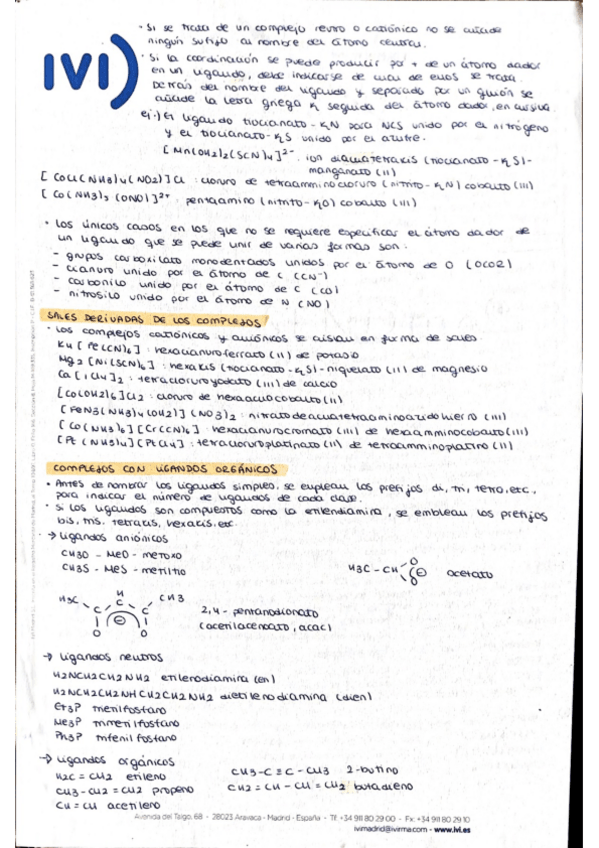 IVI
· Si se trata de un complejo neutro o catiónico no se añade
ningún sufijo al nombre del átomo central.
· Si la coordinación se puede producir por + de un átomo dador
en un ligando, debe indicarse de cual de ellos se trata.
Detrás del nombre del ligando y separado por un guión se
añade la letra griega K, seguida del átomo dador, en cursiva.
Ej.) El ligando tiocianato-KN para NCS unido por el nitrógeno
y el tiocianato-KS unido por el azufre.
[Mn(OH2)2(SCN)4]2- ion diacuatetrakis (tiocianato-KS)-
manganato (II)
[CoCl(NH3)4(NO2)]Cl : cloruro de tetraamminocloruro (nitrito-KN) cobalto (III)
[Co(NH3)5(ONO)]2+ pentaamino (nitrito-KO) cobalto (III)
· Los únicos casos en los que no se requiere especificar el átomo dador de
un ligando que se puede unir de varias formas son:
- grupos carboxilato monodentados unidos por el átomo de O (OCO2)
- cianuro unido por el átomo de C (CN-)
- carbonilo unido por el átomo de C (CO)
- nitrosilo unido por el átomo de N (NO)
SALES DERIVADAS DE LOS COMPLEJOS
· Los complejos catiónicos y aniónicos se aislan en forma de sales.
K4[Fe(CN)6] : hexacianuroferrato (II) de potasio
Mg2[Ni(SCN)6] : hexakis (tiocianato-KS)-niquelato (II) de magnesio
Ca[ICl4]2 : tetracloruroyodato (III) de calcio
[Co(OH2)6]Cl2 : cloruro de hexaacuocobalto (II)
[FeN3(NH3)4(OH2)](NO3)2 : nitrato de acuatetraaminoazido hierro (III)
[Co(NH3)6][Cr(CN)6] : hexacianurocromato (III) de hexaamminocobalto (III)
[Pt(NH3)4][PtCl4] : tetracloruroplatinato (II) de tetraamminoplatino (II)
COMPLEJOS CON LIGANDOS ORGÁNICOS
· Antes de nombrar los ligandos simples, se emplean los prefijos di, tri, tetra, etc,
para indicar el número de ligandos de cada clase.
· Si los ligandos son compuestos como la etilendiamina, se emblean los prefijos
bis, tris, tetracis, hexacis, etc.
→ Ligandos aniónicos
CH3O - MeO - metoxo
CH3S - MeS - metiltio
H3C - CH O O acetato
H3C C H C C CH3 O O
2,4 - pentanodionato
(acetilacetonato, acac)
→ Ligandos neutros
H2NCH2CH2NH2 etilenodiamina (en)
H2NCH2CH2NHCH2CH2NH2 dietilenodiamina (dien)
Et3P trietilfosfano
Me3P trimetilfosfano
Ph3P trifenilfosfano
→ Ligandos orgánicos
H2C = CH2 etileno
CH3-CH2 = CH2 propeno
CH = CH acetileno
CH3-C ≡ C - CH3 2-butino
CH2 = CH - CH = CH2 butadieno
Avenida del Talgo, 68 - 28023 Aravaca - Madrid - España - Tlf +34 911 80 29 00 - Fx: +34 911 80 29 10
ivimadrid@ivirma.com - www.ivi.es